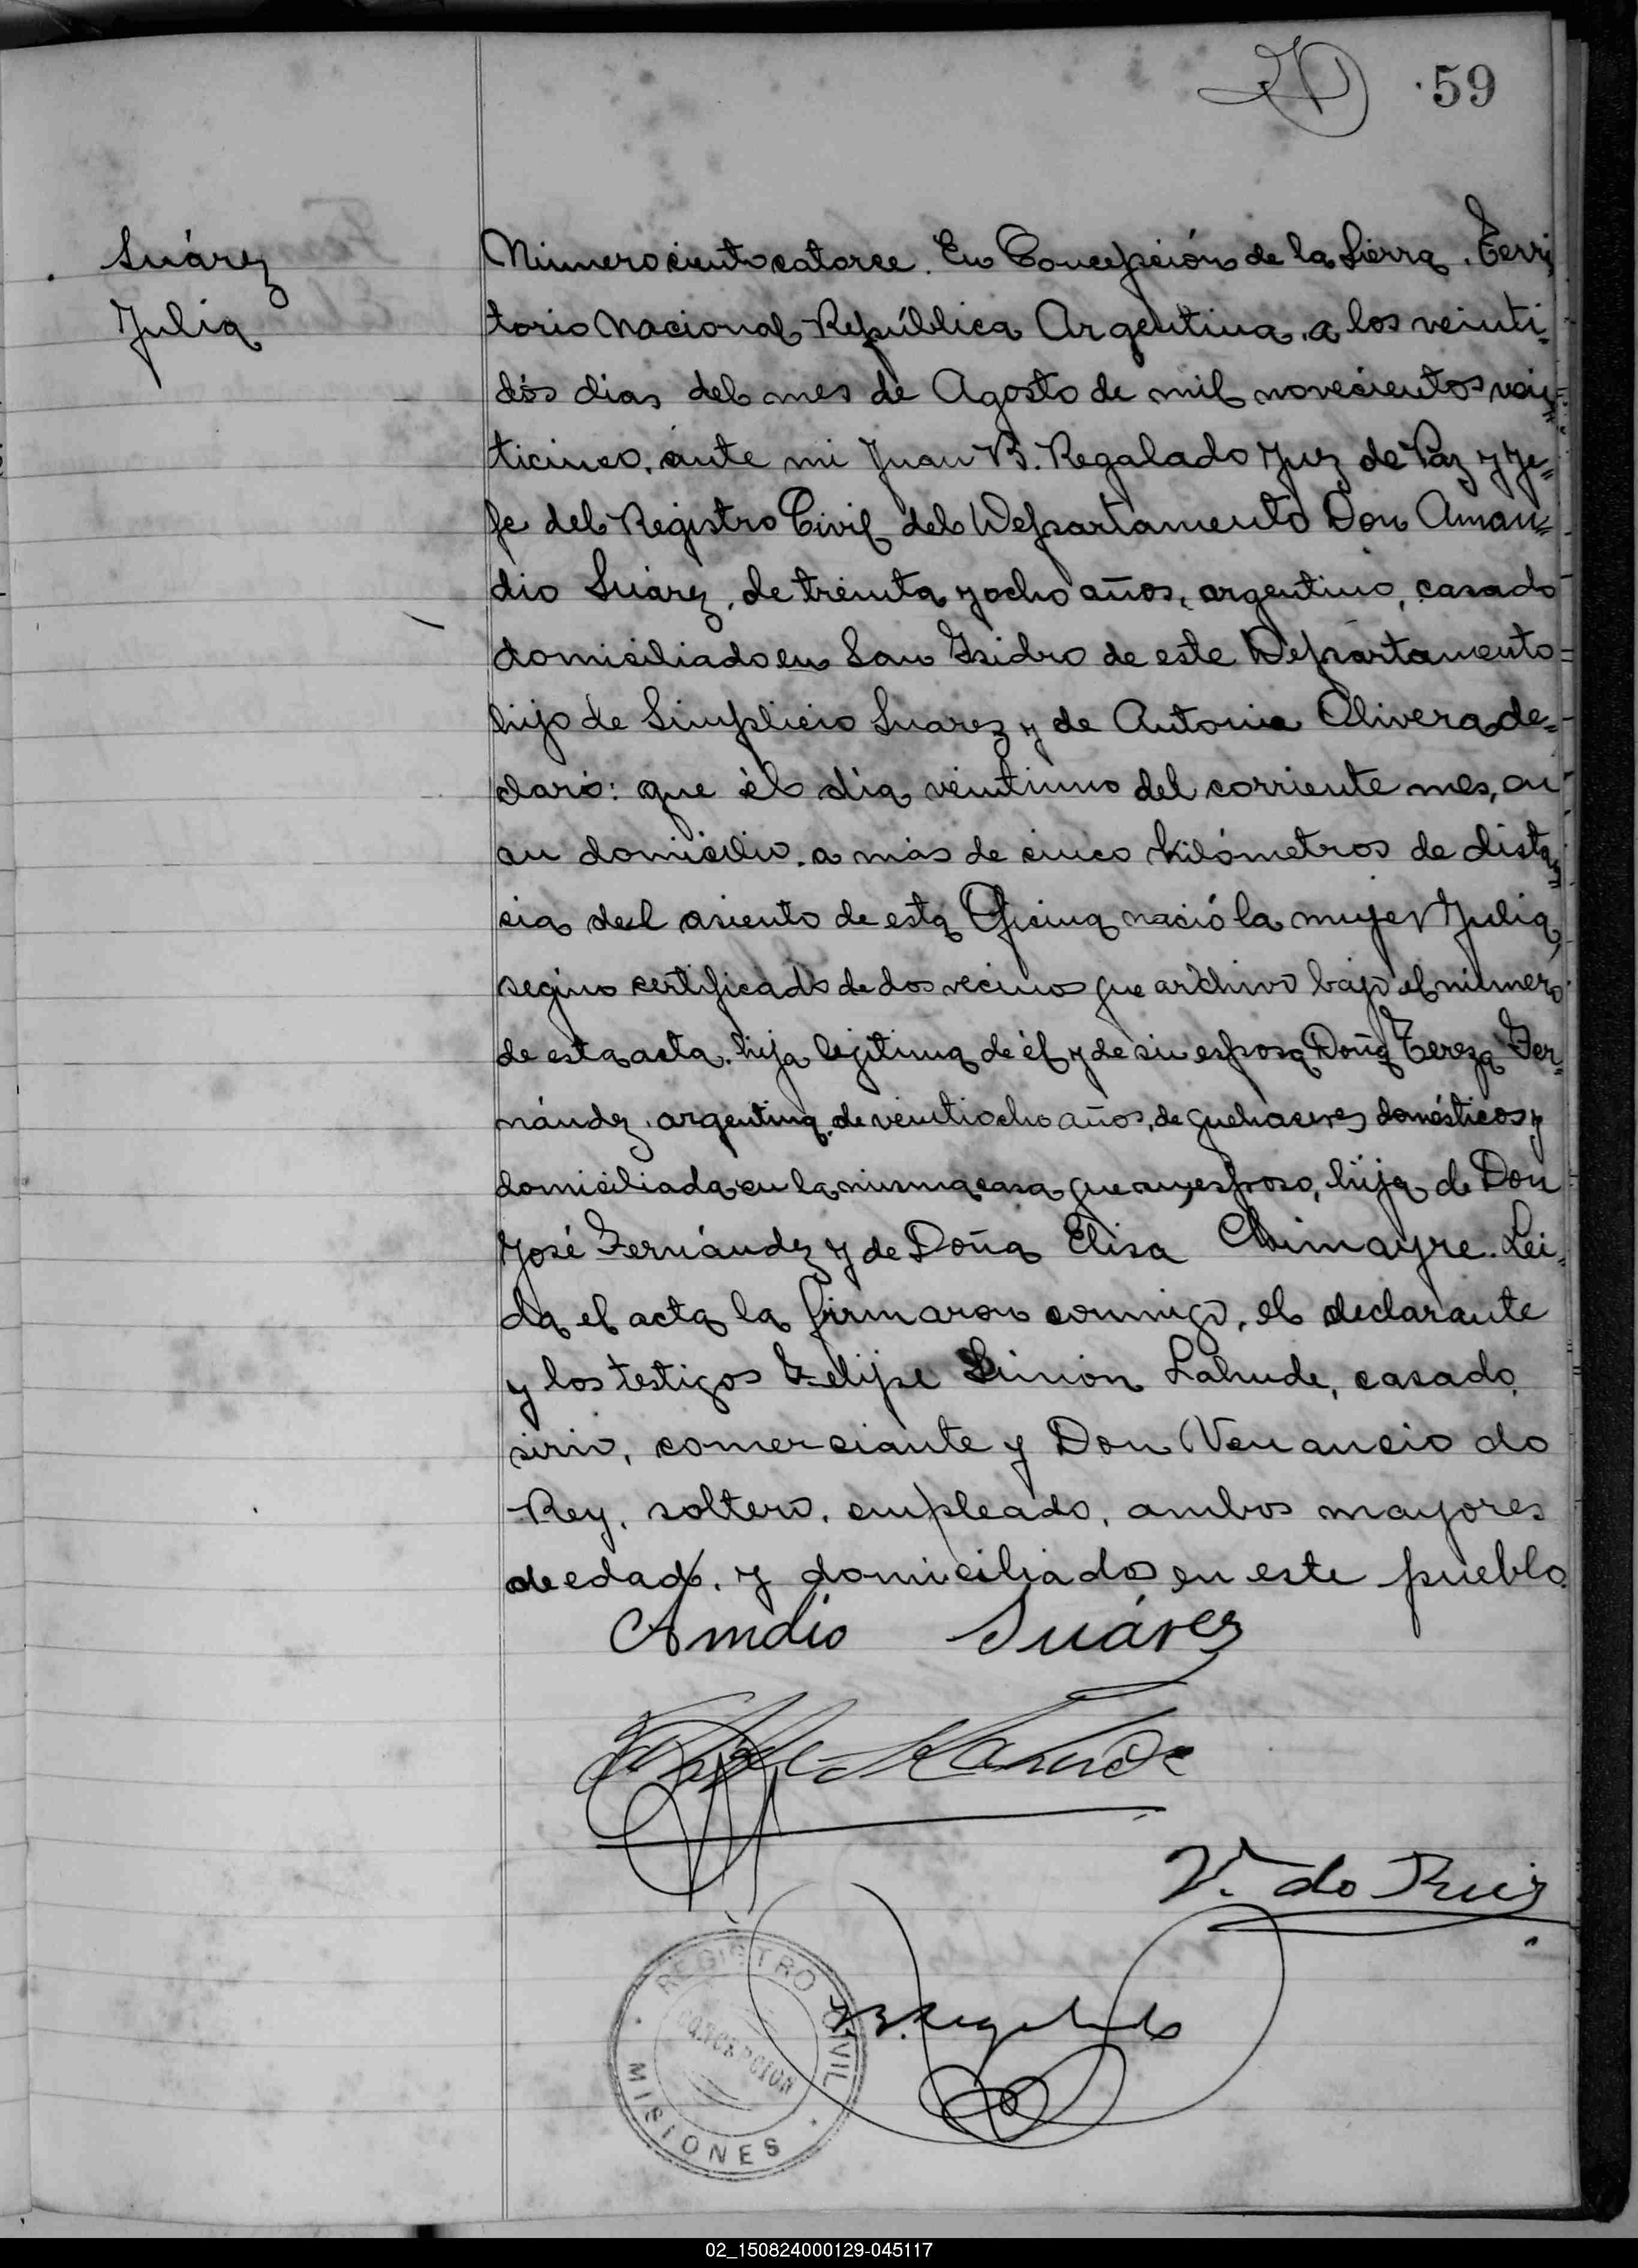 59
Suárez
Julia
Número ciento catorce. En Concepción de la Sierra, Terri
torio Nacional República Argentina, a los veinti-
dós dias del mes de Agosto de mil novecientos vein=
ticinco, ante mi Juan B. Regalado Juz de Paz y Je=
fe del Registro Civil del Departamento Don Aman=
dio Suárez, de treinta y ocho años, argentino, casado
domiciliado en San Isidro de este Departamento
hijo de Simplicio Suarez y de Antonia Olivera, de=
claró: que él día veintiuno del corriente mes, en
su domicilio, a más de cinco kilómetros de distan=
cia del asiento de esta Oficina nació la mujer Julia,
según certificado de dos vecinos que archivo bajo el número
de esta acta, hija lejitima de él y de su esposa Doña Tereza Fer=
nández, argentina, de veintiocho años, de quehaceres domésticos y
domiciliada en la misma casa que su esposo, hija de Don
José Fernández y de Doña Elisa Chimayre. Lei-
da el acta la firmaron conmigo, el declarante
y los testigos Felipe Simon Lahude, casado,
sirio, comerciante y Don Venancio do
Rey, soltero, empleado, ambos mayores
de edad, y domiciliados en este pueblo.
Amdio Suárez
Felipe S Lahude
V. do Rey
J B. Regalado
REGISTRO CIVIL
CONCEPCION
MISIONES
02_150824000129-045117